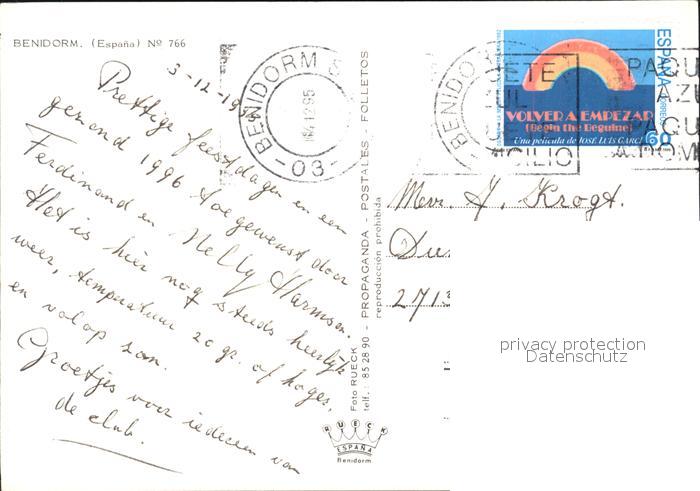 BENIDORM. (España) Nº 766
3-12-1995
Prettige feestdagen en een
gezond 1996 toegewenst door
Ferdinand en Nelly Harmsen.
Het is hier nog steeds heerlijk
weer, temperatuur 20 gr. of hoger,
en volop zon.
Groetjes voor iedereen van
de club.
Foto RUECK - PROPAGANDA - POSTALES - FOLLETOS
telf.: 85 28 90 -
reproducción prohibida
RUECK
ESPAÑA
Benidorm
BENIDORM
12 95
- 03 -
BENIDO
ETE
UL
CILIO
PAQU
AZU
PAQU
A DOM
ESPAÑA
CORREOS
VOLVER A EMPEZAR
(Begin the Beguine)
Una película de JOSÉ LUIS GARCI
60
Mevr. J. Krogt.
Du
2713
privacy protection
Datenschutz